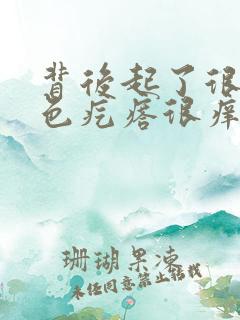 背後起了很
色疙瘩很癢
珊瑚果凍
未经同意禁止转载